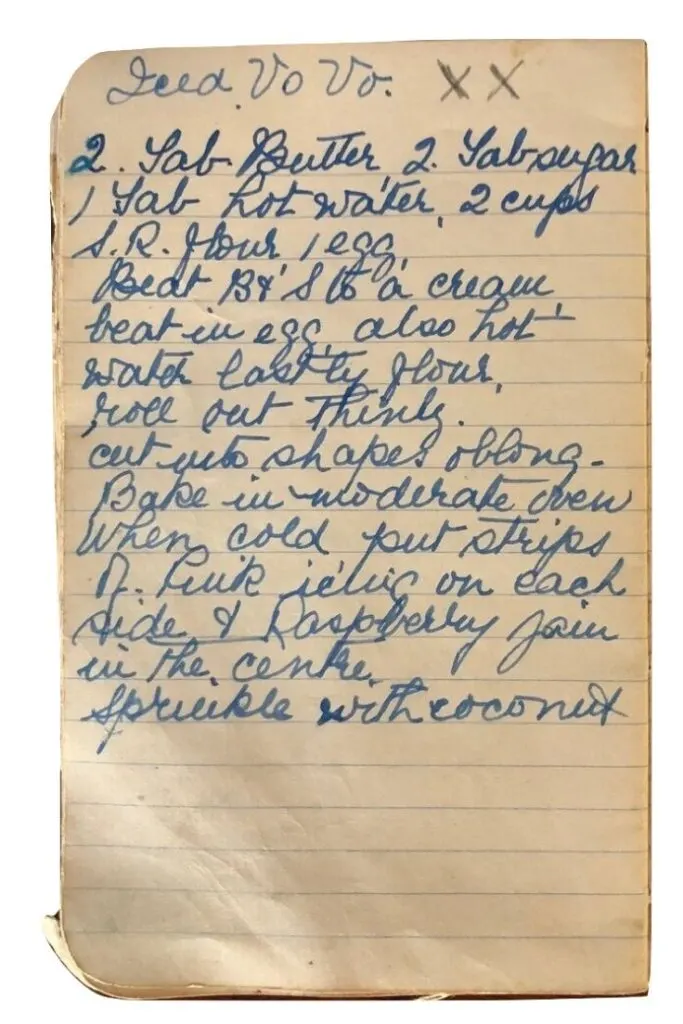 Iced Vo Vo. XX
2. Tab Butter, 2. Tab sugar
1 Tab hot water, 2 cups
S.R. flour, 1 egg,
Beat B & S to a cream
beat in egg, also hot
water lastly flour,
roll out thinly.
cut into shapes oblong-
Bake in moderate oven
When cold put strips
of Pink icing on each
side & Raspberry jam
in the centre.
Sprinkle with coconut